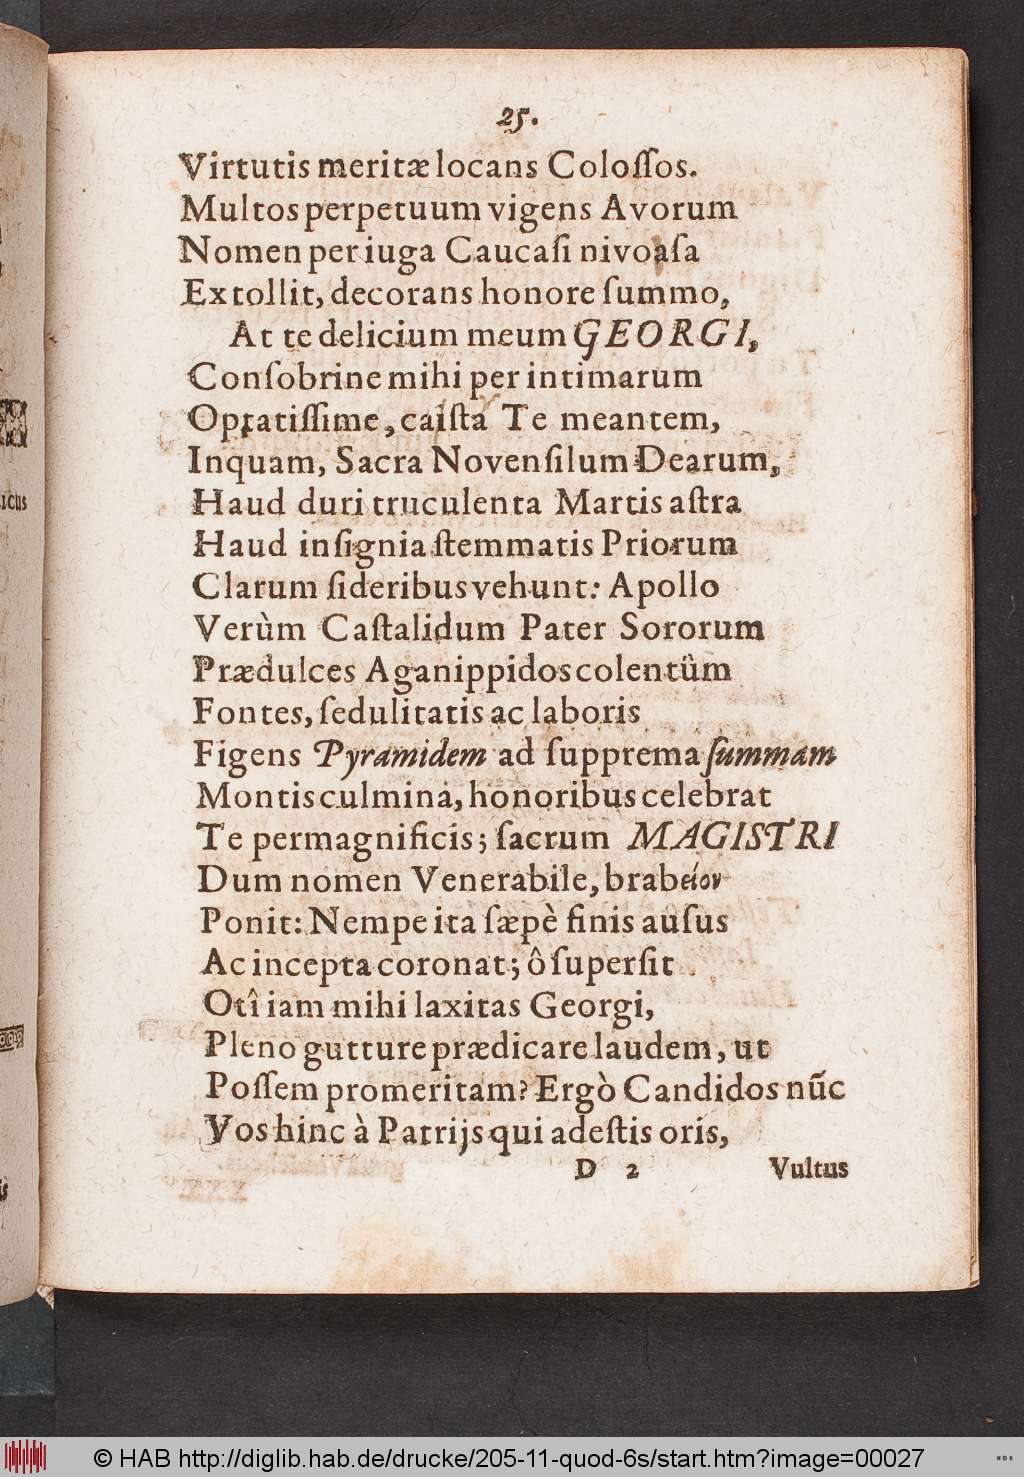 25.
Virtutis meritæ locans Coloſſos.
Multos perpetuum vigens Avorum
Nomen per iuga Caucaſi nivoaſa
Extollit, decorans honore ſummo,
At te delicium meum GEORGI,
Conſobrine mihi per intimarum
Optatiſſime, caiſta Te meantem,
Inquam, Sacra Novenſilum Dearum,
Haud duri truculenta Martis aſtra
Haud inſignia ſtemmatis Priorum
Clarum ſideribus vehunt: Apollo
Verùm Caſtalidum Pater Sororum
Prædulces Aganippidos colentûm
Fontes, ſedulitatis ac laboris
Figens Pyramidem ad ſupprema ſummam
Montis culmina, honoribus celebrat
Te permagnificis; ſacrum MAGISTRI
Dum nomen Venerabile, brabείον
Ponit: Nempe ita ſæpè finis auſus
Ac incepta coronat; ô ſuperſit
Otî iam mihi laxitas Georgi,
Pleno gutture prædicare laudem, ut
Poſſem promeritam? Ergò Candidos nūc
Vos hinc à Patrijs qui adeſtis oris,
D 2 Vultus
icus
© HAB http://diglib.hab.de/drucke/205-11-quod-6s/start.htm?image=00027